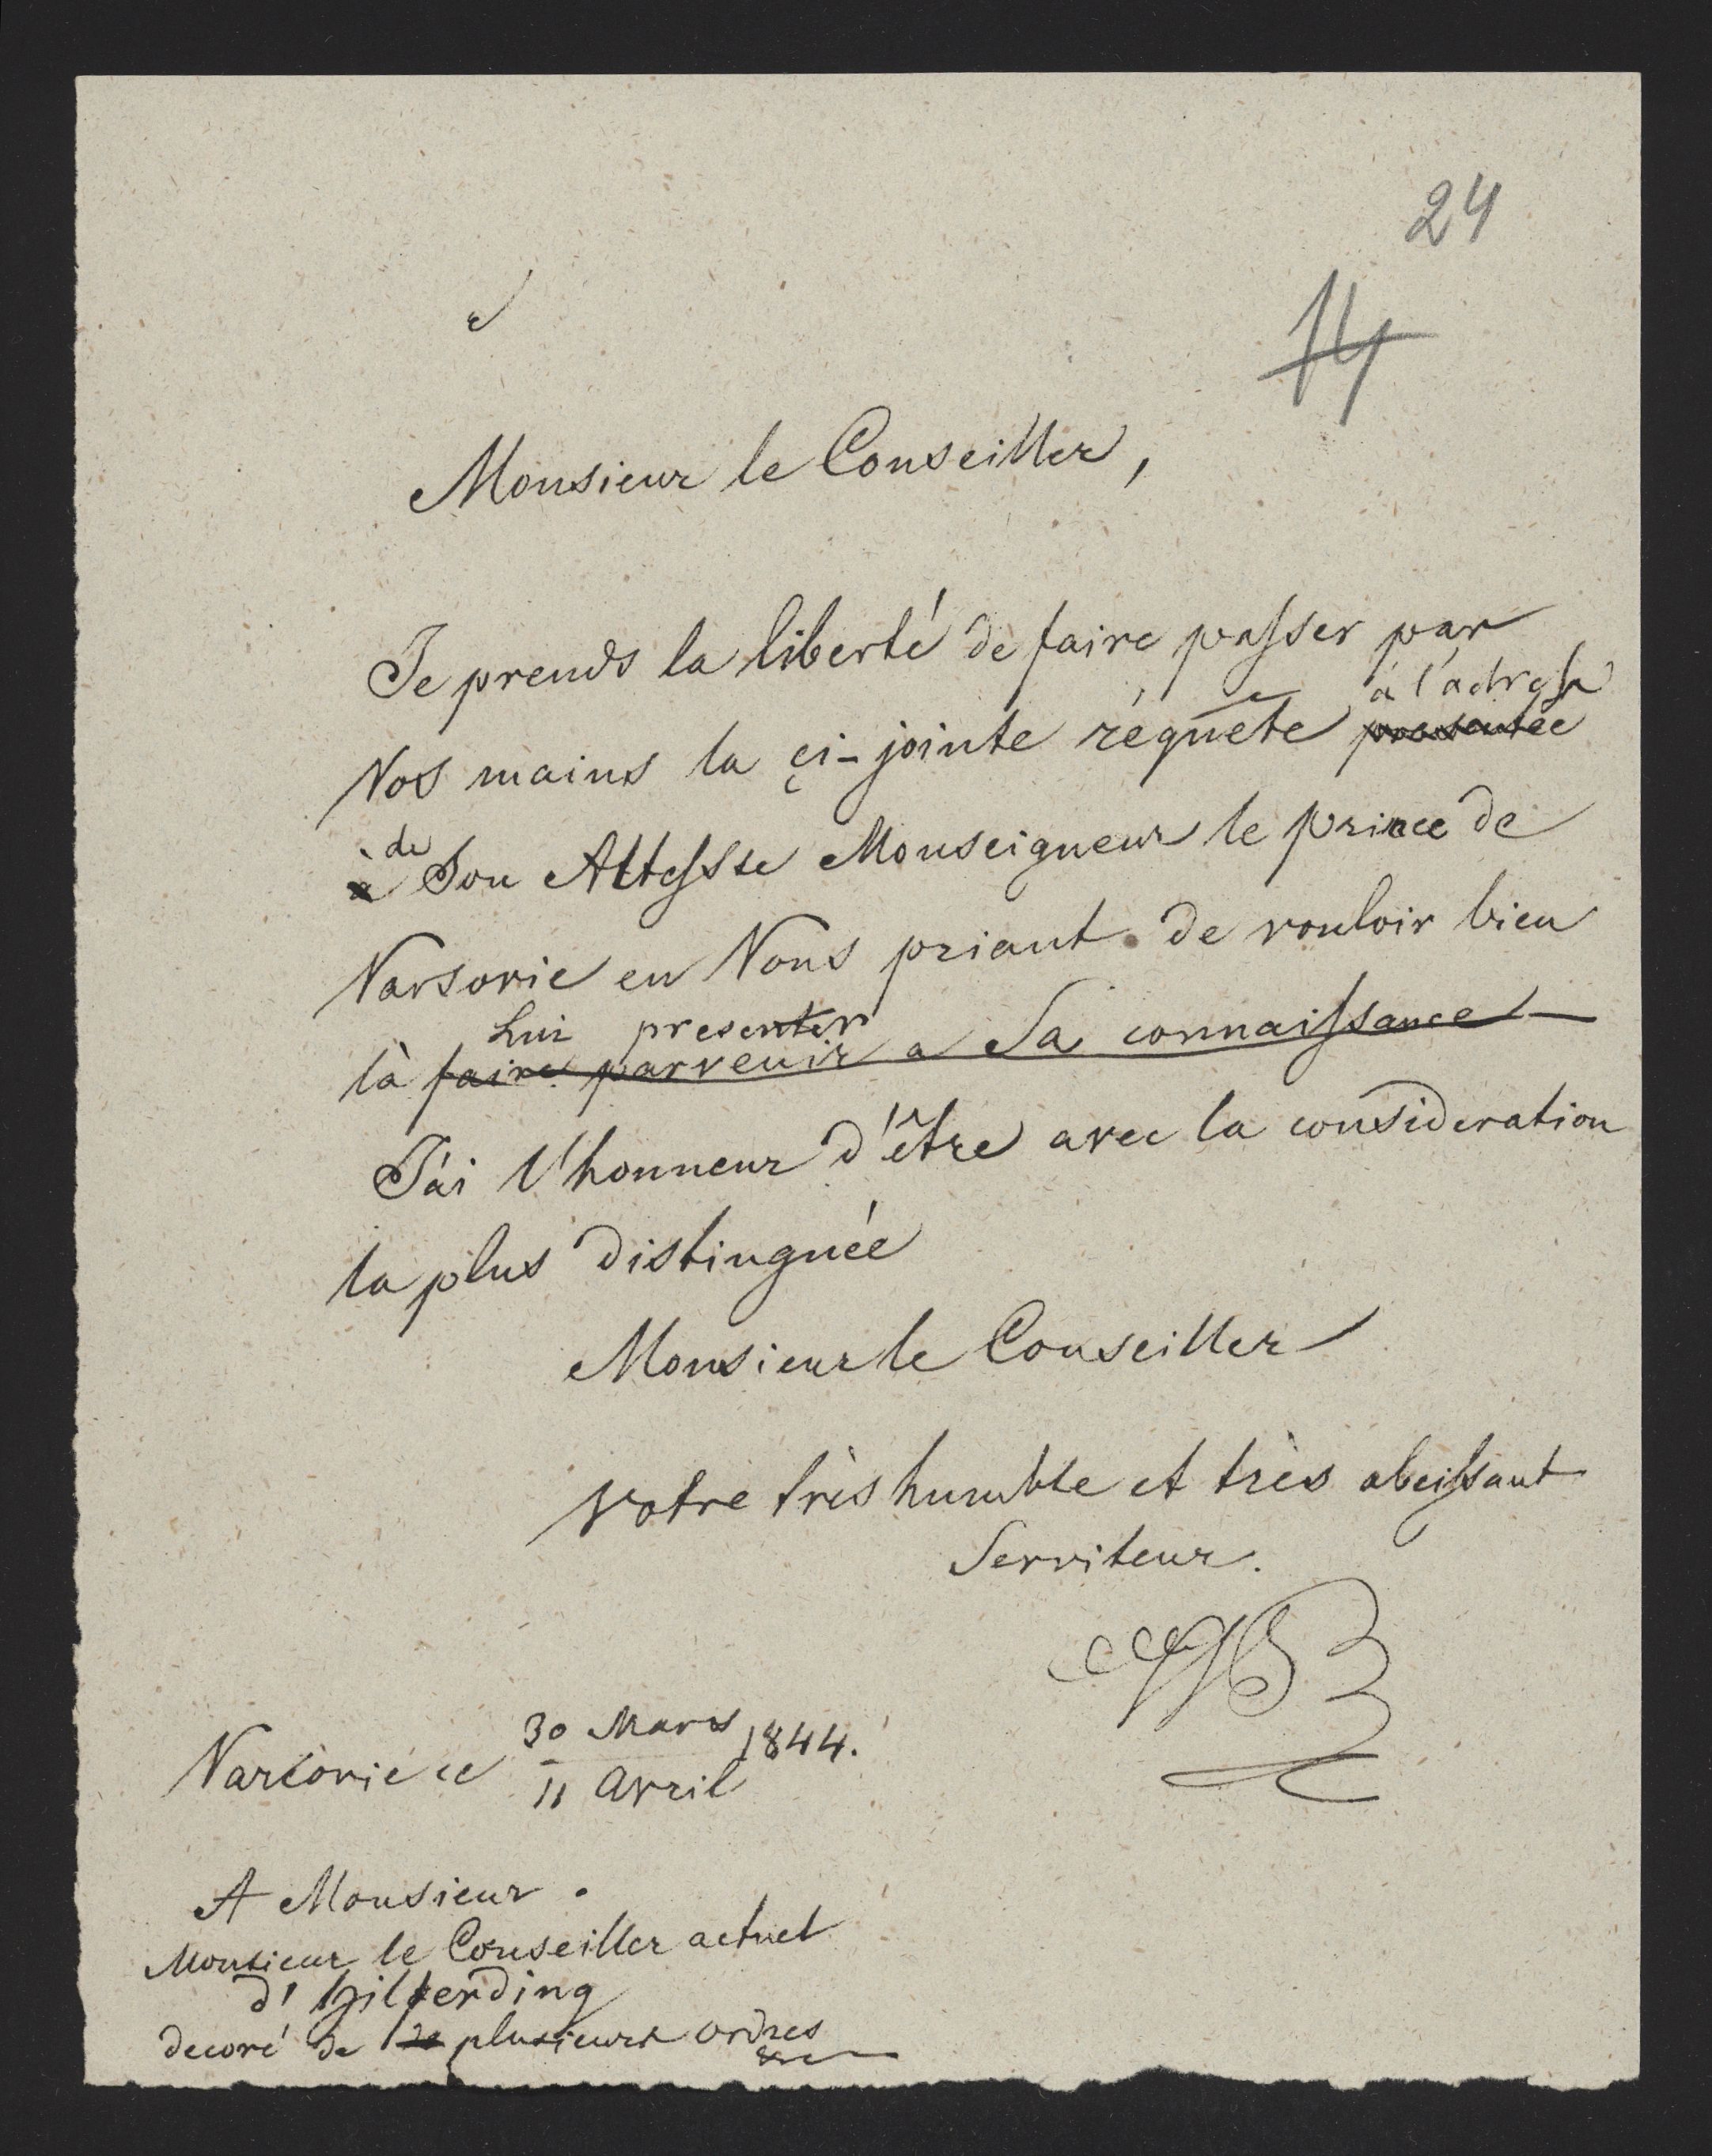 24
14
Monsieur le Conseiller,
Je prends la liberté de faire passer par
Vos mains la çi-jointe réquête presentée à l'adresse
à de Son Altesse Monseigneur le prince de
Varsovie en Vous priant de vouloir bien
Lui presenter
là faire parvenir a Sa connaissance —
J'ai l'honneur d'être avec la consideration
la plus distinguée
Monsieur le Conseiller
Votre très humble et très obeissant
Serviteur.
Varsovie ce 30 Mars / 11 Avril 1844.
A Monsieur.
Monsieur le Conseiller actuel
d'Hilferding
decoré de de plusieurs ordres